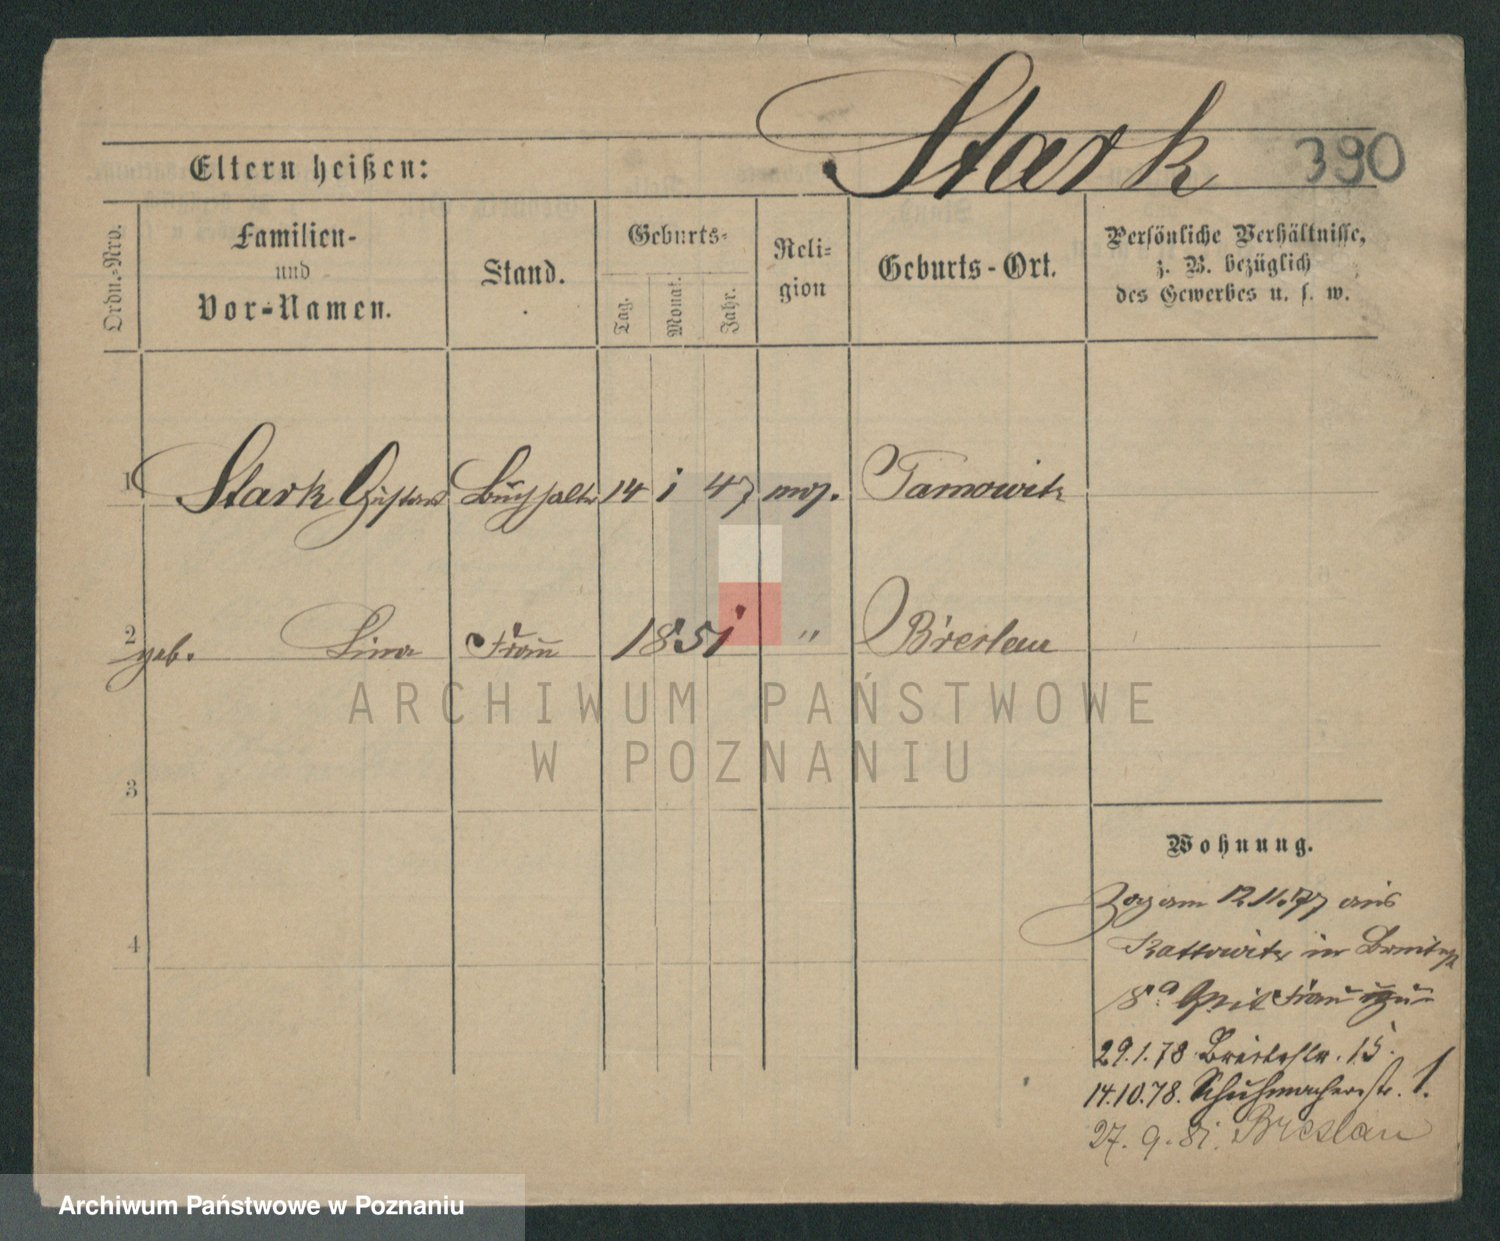 Stark 390
Eltern heißen:
Ordn.-Nro.
Familien-
und
Vor-Namen.
Stand.
Geburts-
Tag.
Monat.
Jahr.
Reli-
gion
Geburts-Ort.
Persönliche Verhältnisse,
z. B. bezüglich
des Gewerbes u. s. w.
1 Stark Gustav Buchhalter 14 1 47 mos. Tarnowitz
2 geb. Lina Frau 1851 " Breslau
3
4
Wohnung.
Zog am 12.11.77 aus
Kattowitz in Breitestr
8a Frau
29.1.78 15.
14.10.78. Schuhmacherstr. 1.
27.9.81. Breslau
ARCHIWUM PAŃSTWOWE
W POZNANIU
Archiwum Państwowe w Poznaniu